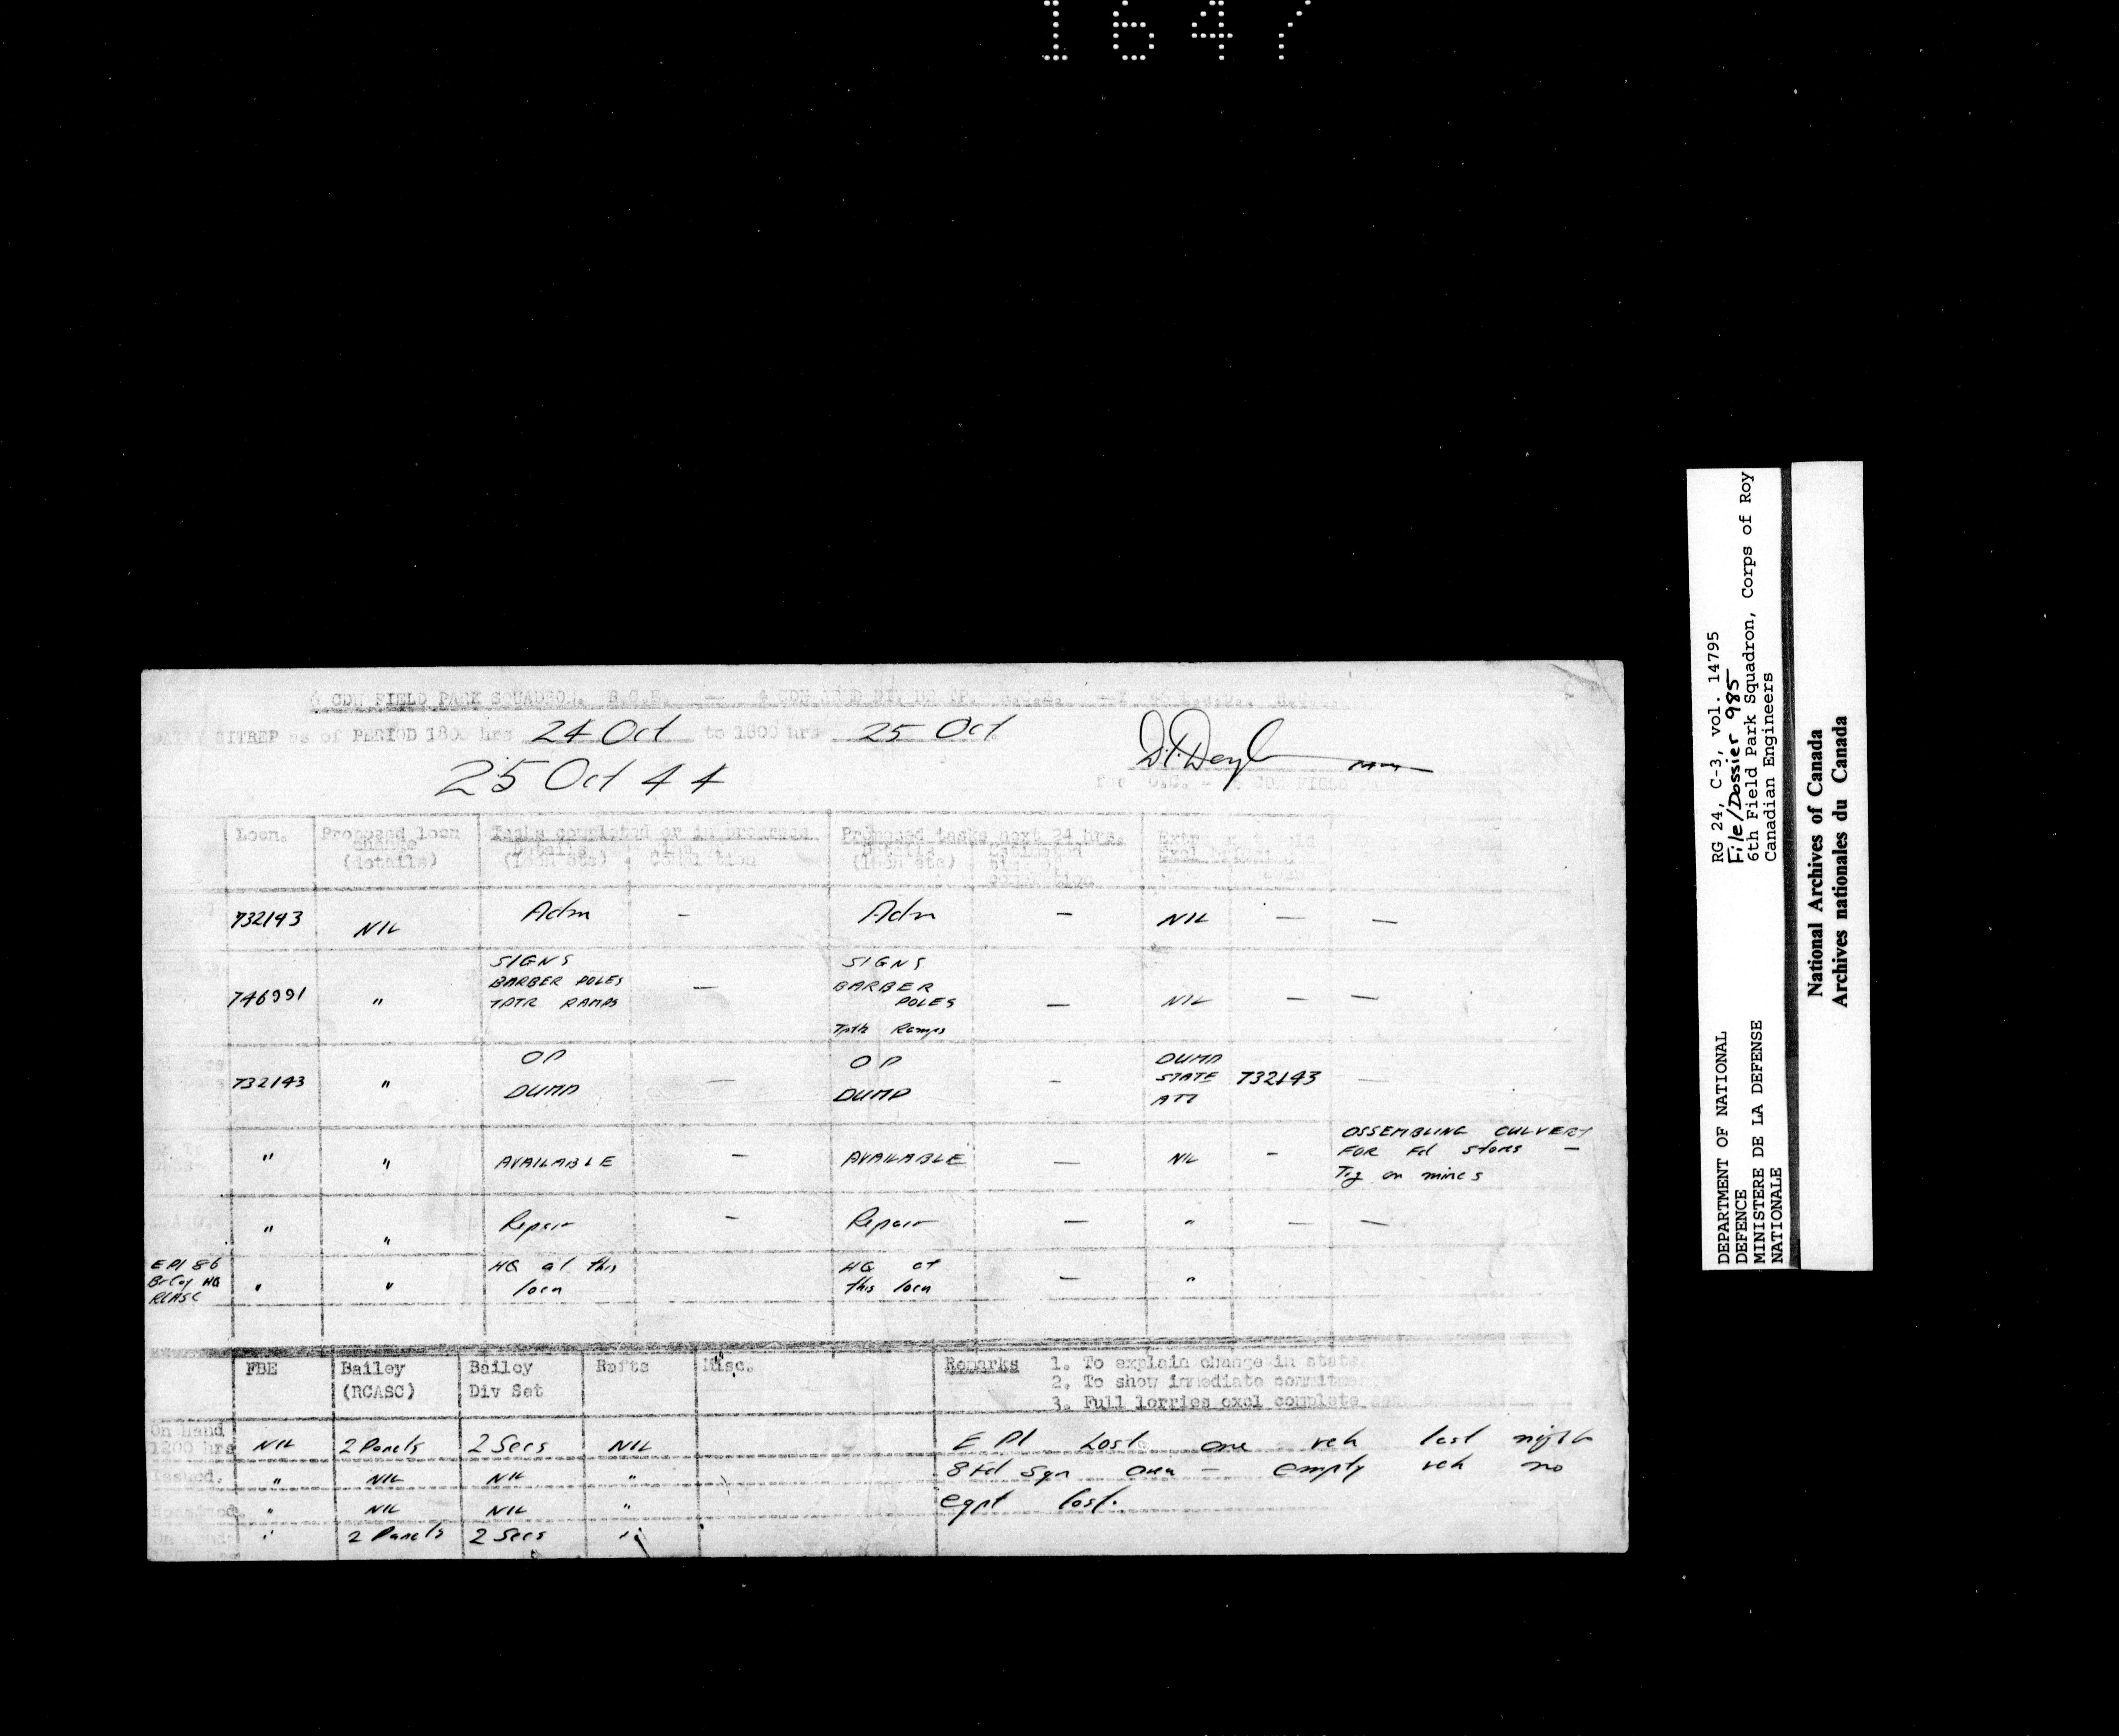 1647
6 CDN FIELD PARK SQUADRON R.C.E. — 4 CDN ARMD DIV BR TP. R.C.E.
DAILY SITREP as of PERIOD 1800 hrs 24 Oct to 1800 hrs 25 Oct
25 Oct 44
for O.C. - 6 CDN FIELD
Locn. Proposed locn change (details) Tasks completed or in progress Proposed tasks next 24 hrs.
Details (locn etc) Details (locn etc) Estimated
732143 NIL Adm — Adm — NIL — —
746991 " SIGNS BARBER POLES TPTR RAMPS — SIGNS BARBER POLES Tptr Ramps — NIL — —
732143 " OP DUMP — OP DUMP - DUMP STATE ATT 732143 —
" " AVAILABLE — AVAILABLE — NIL - OSSEMBLING CULVERT FOR Fd Stores — Trg on mines
" " Repair — Repair — " — —
E Pl 86 Br Coy HQ RCASC " " HQ at this locn HQ at this locn — "
FBE Bailey (RCASC) Bailey Div Set Rafts Misc. Remarks 1. To explain change in state.
2. To show immediate commitments
3. Full lorries excl complete
On hand 1200 hrs NIL 2 Panels 2 Secs NIL E Pl Lost one veh last night
Issued. " NIL NIL " 8 Fd Sqn area — empty veh no
Received. " NIL NIL " eqpt lost.
" 2 Panels 2 Secs "
RG 24, C-3, vol. 14795
File/Dossier 985
6th Field Park Squadron, Corps of Roy
Canadian Engineers
DEPARTMENT OF NATIONAL
DEFENCE
MINISTERE DE LA DEFENSE
NATIONALE
National Archives of Canada
Archives nationales du Canada